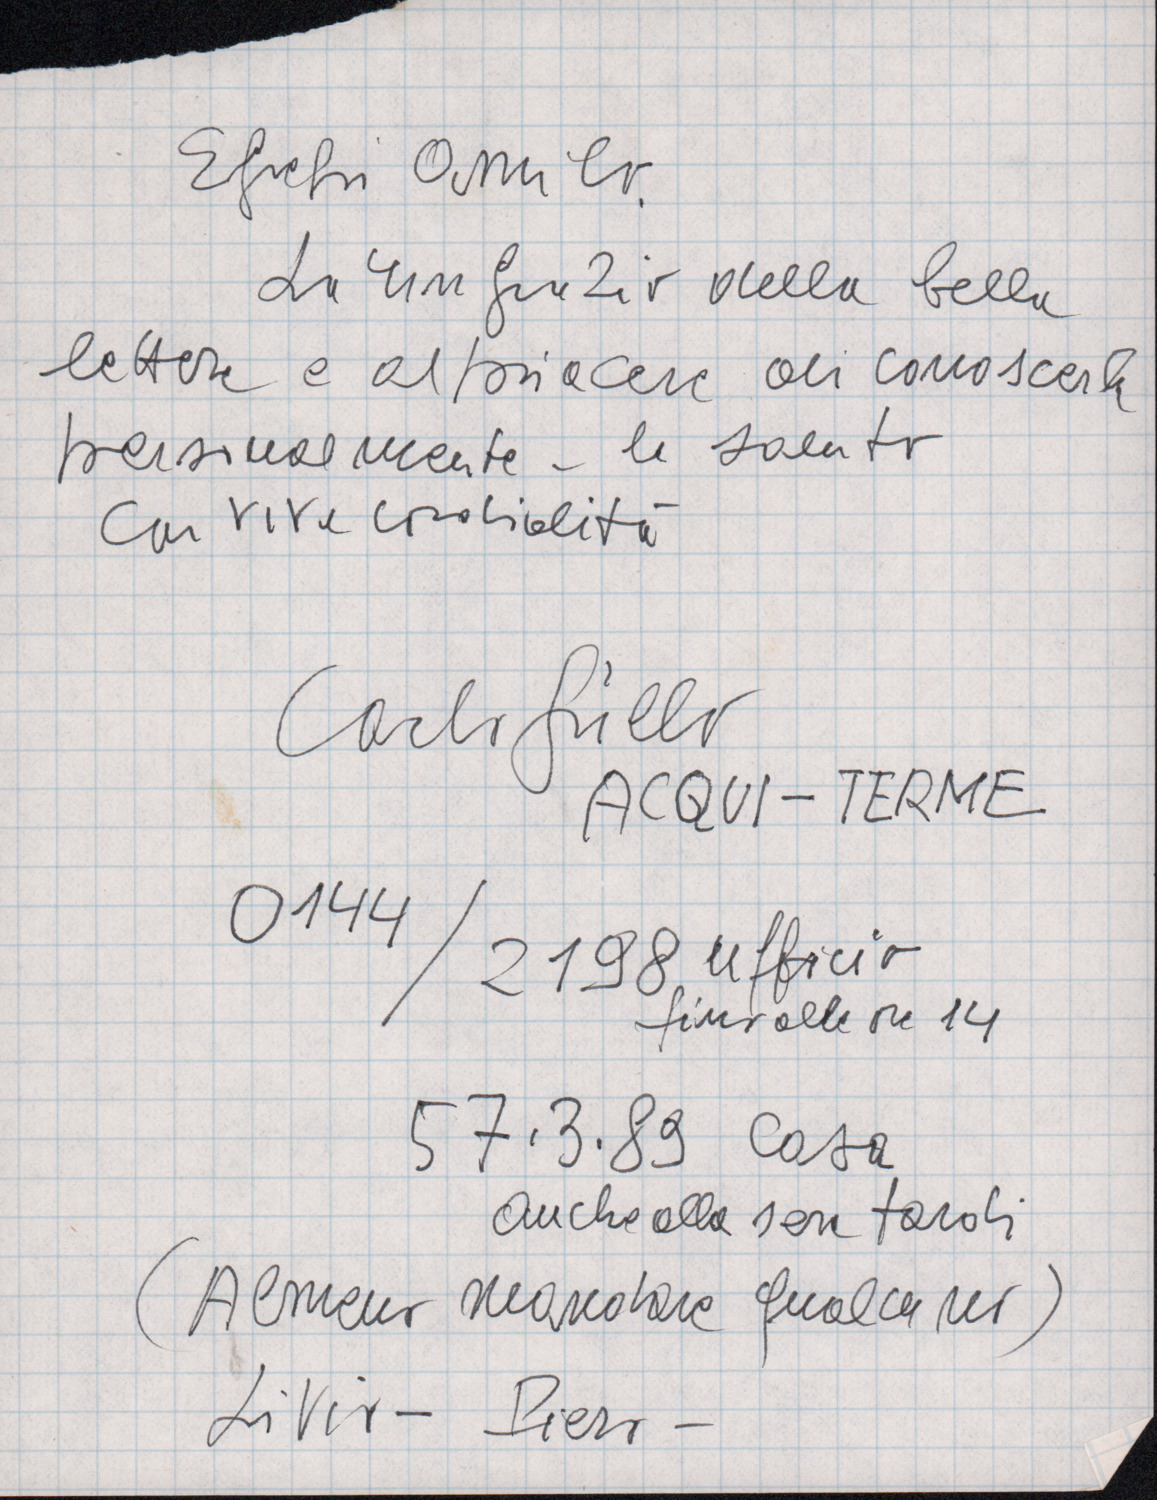 La ringrazio della bella
lettera e al piacere di conoscerla
personalmente - la saluto
Con viva cordialità
Carlo
ACQUI - TERME
0144/2198 ufficio
fino alle ore 14
57.3.89 casa
anche alla sera tardi
(Almeno mandare qualcuno)
Livio - Piero -